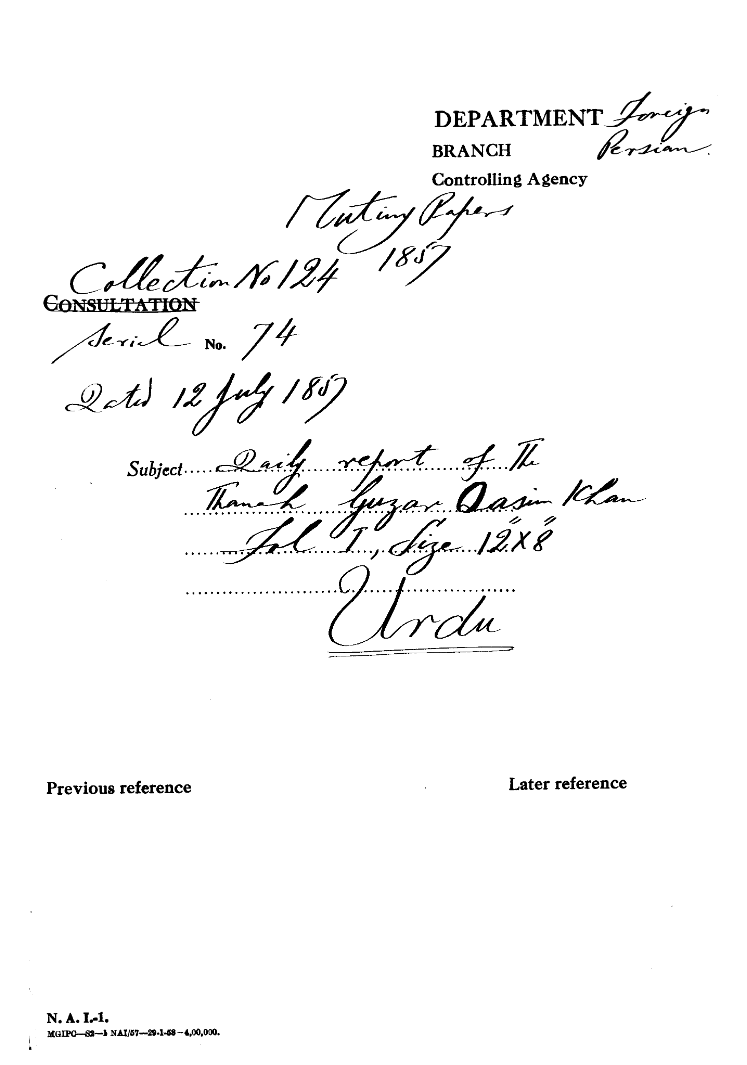 DEPARTMENT Foreign
BRANCH Persian.
Controlling Agency
Mutiny Papers
1857
Collection No 124
CONSULTATION
Serial No. 74
Dated 12 July 1857
Subject Daily report of The
Thanah Guzar Qasim Khan
Fol 1, Size 12"X8"
Urdu
Previous reference Later reference
N. A. I.-1.
MGIPC—S2—1 NAI/57—29-1-58—4,00,000.